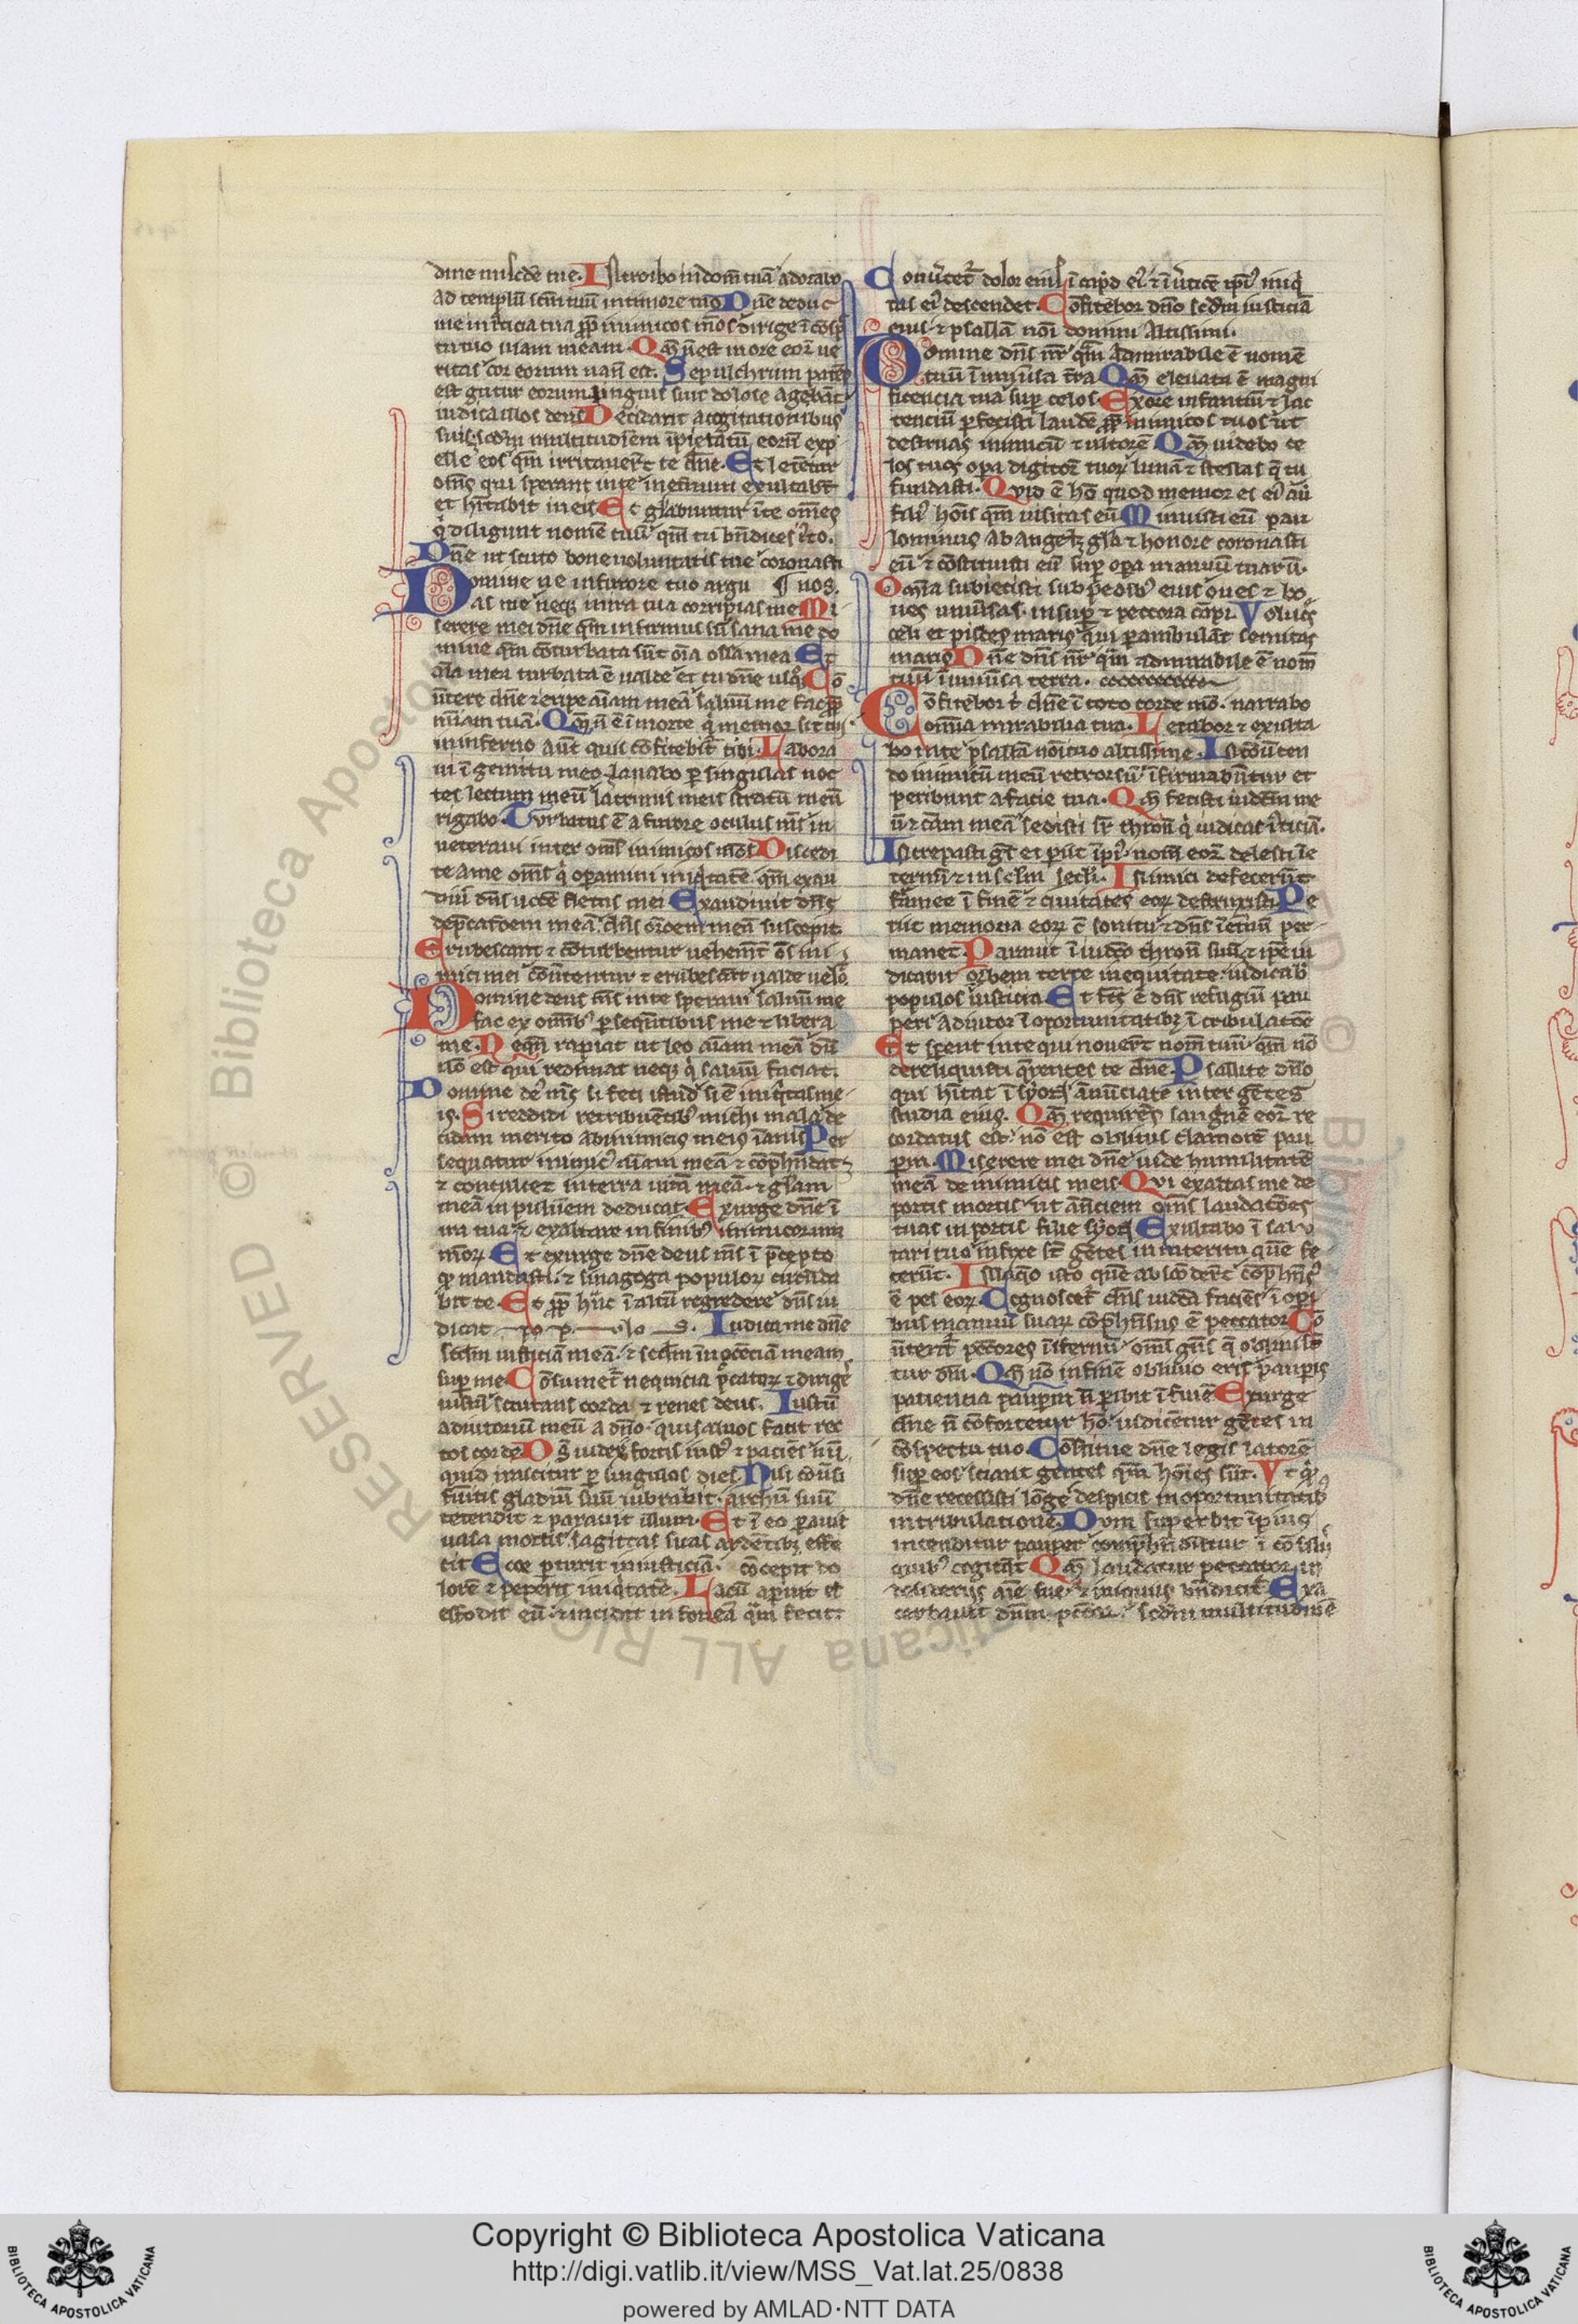 dine misc̄de tue. Introibo in dom̄ tuā adorabo
ad templū sc̄m tuū in timore tuo Dn̄e deduc
me in iticia tua ꝓp̄ inimicos mōs dirige ī cōsp̄
tu tuo uiam meam. Qm̄ n̄ est in ore eoꝝ ue
ritas cor eorum uan̄ est. Sepulchrum patēs
est gutur eorum linguis suis dolose agebāt
iudica illos deus Decidant a cogitationibus
suis scd̄m multitudinem īpietatū eorū exp
elle eos qm̄ irritauer̄t te dn̄e. Et letētur
om̄s qui sperant in te in eternum exultabt̄
et hitabit in eis Et gl̄abuntur ī te om̄es
q̇ diligunt nomē tuū qm̄ tu bn̄dices iṫo.
Dn̄e ut scuto bone uoluntatis tue coronasti
Domine ne in furore tuo argu ¶ nos.
as me neqꝫ in ira tua corripias me Mi
serere mei dn̄e qm̄ infirmus sū sana me do
mine qm̄ cōturbata sūt oīa ossa mea Et
aīa mea turbata ē ualde et tu dn̄e usq̇ꝫ Cō
ūtere dn̄e ⁊ eripe aīam meā saluū me fac ꝓp̄
mīam tuā. Qm̄ n̄ ē ī morte q̇ memor sit tui
in inferno aūt quis cōfitebit̄ tibi. Labora
ui ī gemitu meo lauabo ꝑ singulas noc
tes lectum meū lacrimis meis stratū meū
rigabo. Turbatus ē a furore oculus m̄s in
ueteraui inter om̄s inimicos mōs Discedi
te a me om̄s q̇ operamini iniq̇tatē qm̄ exau
diuit dn̄s uocē fletus mei Exaudiuit dn̄s
dep̄cat̄oem meā dn̄s or̄oem meū suscepit
Erubescant ⁊ cōturbentur uehemēt̄ oēs ini
mici mei conūtentur ⁊ erubescāt ualde uelo.
Domine deus m̄s in te speraui saluū me
fac ex omībꝰ ꝑsequētibus me ⁊ libera
me. Neqn̄ rapiat ut leo aīam meā dū
nō est qui redimat neqꝫ q̇ saluū faciat.
Domine deꝰ m̄s si feci istud si ē iniq̇tas me
is. Si reddidi retribuētibꝰ michi mala de
cidam merito ab inimicis meis īanis Per
sequatur inimicꝰ aīam meā ⁊ cōp̄hn̄dat
⁊ conculcet in terra uitā meā ⁊ gl̄am
meā in puluerem deducat. Exurge dn̄e ī
ira tua ⁊ exaltare in finibꝰ inimicorum
mōꝝ Et exurge dn̄e deus m̄s ī p̄cepto
qꝫ mandasti ⁊ sinagoga populoꝝ circūda
bit te. Et ꝓp̄ hāc ī altū regredere dn̄s iu
dicat po p. — lo — s. Iudica me dn̄e
scd̄m iusticiā meā ⁊ scd̄m īnocēciā meam
suꝑ me. Cōsumet̄ nequicia p̄catoꝝ ⁊ dirige
iustū scrutans corda ⁊ renes deus. Iustū
adiutoriū meū a dn̄o qui saluos facit rec
tos corde Ds̄ iudex fortis iustꝰ ⁊ paciēs nū
quid irascitur ꝑ singulos dies. Nisi cōūsi
fūitis gladiū suū uibrabit archū suū
tetendit ⁊ parauit illum. Et ī eo parauit
uasa mortis sagittas suas ardētibꝫ effe
cit Ecce parturit iniusticiā cōcepit do
lorē ⁊ peperit iniq̇tatē. Lacū aperuit et
effodit eū ⁊ incidit in foueā qm̄ fecit.
Conūtet̄ dolor eius ī cap̄d eiꝰ ⁊ ī ūticē ip̄iꝰ iniq̇
tas eiꝰ descendet. Cōfitebor dn̄o scd̄m iusticiā
eius ⁊ psallā noī domini altissimi.
Domine dn̄s nr̄ qm̄ admirabile ē nomē
tuū ī uniūsa t̄ra Qm̄ eleuata ē magni
ficencia tua suꝑ celos. Ex ore infantiū ⁊ lac
tenciū ꝑfecisti laudē ꝓp̄ inimicos tuos ut
destruas inimicū ⁊ ultorē Qm̄ uidebo ce
los tuos opa digitoꝝ tuoꝝ lunā ⁊ stellas q̄ tu
fundasti. Quid ē hō quod memor es eiꝰ aū
filiꝰ hoīs qm̄ uisitas eū Minuisti eū pau
lominus ab angelꝫ gl̄a ⁊ honore coronasti
eū ⁊ cōstituisti eū suꝑ opa manuū tuarū.
Omnīa subiecisti sub pedibꝰ eius oues ⁊ bo
ues uniūsas insuꝑ ⁊ peccora cāpi. Volucs̄
celi et pisces maris qui ꝑambulāt semitas
maris Dn̄e dn̄s nr̄ qm̄ admirabile ē nom̄
tuū ī uniūsa terra.
Cōfitebor t̄ dn̄e ī toto corde mō narrabo
omīa mirabilia tua. Letabor ⁊ exulta
bo in te psallā nōi tuo altissime. In cōūten
do inimicū meū retrorsū īfirmabūtur et
peribunt a facie tua. Qm̄ fecisti iudm̄ me
ū ⁊ cām meā sedisti sr̄ thronū q̇ iudicas iticiā.
Increpasti gt̄es et piit īpiꝰ nom̄ eoꝝ delesti īe
ternū ⁊ in sclm̄ secli. Inimici defecerūt
framee ī finē ⁊ ciuitates eoꝝ destruxisti Pe
riit memoria eoꝝ c̄ sonitu ⁊ dn̄s īetnū per
manet Parauit ī iudico thronū suū ⁊ ip̄e iu
dicabit orbem terre in equitate iudicab̄
populos iusticia Et f̄cs ē dn̄s refugiū pau
peri adiutor ī oportunitatibꝫ ī tribulatōe
Et sperent in te qui nouer̄t nom̄ tuū qm̄ nō
dereliquisti q̄rentes te dn̄e. Psallite dn̄o
qui hītat ī syon ānūciate inter gētes
studia eius. Qm̄ requirēs sanguinē eoꝝ re
cordatus est nō est oblitus clamorē pau
ꝑm. Miserere mei dn̄e uide humilitatē
meā de inimicis meis. Qui exaltas me de
portis mortis ut ānūciem om̄s laudacōes
tuas in portis filie syon Exultabo ī salu
tari tuo infixe st̄ gētes in interitu quē fe
cerūt. In laqueo isto quē abscōderūt cōp̄hn̄sꝰ
ē pes eoꝝ. Cognoscet̄ dn̄s iudicia faciēs ī opi
bus manuū suaꝝ cōp̄hēsus ē peccator Cō
ūtent̄ pctōres ī īfernū om̄s gn̄tes q̄ obliuis
tur dm̄. Qm̄ nō in finē obliuio erit pauꝑis
patientia pauꝑm n̄ peribit ī finē Exurge
dn̄e n̄ cōfortetur hō iudicētur gētes in
cōspectu tuo. Cōstitue dn̄e legis latorē
suꝑ eos sciant gentes qm̄ hoīes sūt. Vt qd̄
dn̄e recessisti lōge despicis in oportunitatibꝰ
in tribulatione. Dum superbit īpius
incenditur pauper comp̄hn̄duntur ī cōsilii
quibꝰ cogitāt Qm̄ laudatur peccator in
desideriis aīe sue ⁊ iniquus bn̄dicit̄ Exa
cerbauit dn̄m pctōr scd̄m multitudinē
Copyright © Biblioteca Apostolica Vaticana
http://digi.vatlib.it/view/MSS_Vat.lat.25/0838
powered by AMLAD·NTT DATA